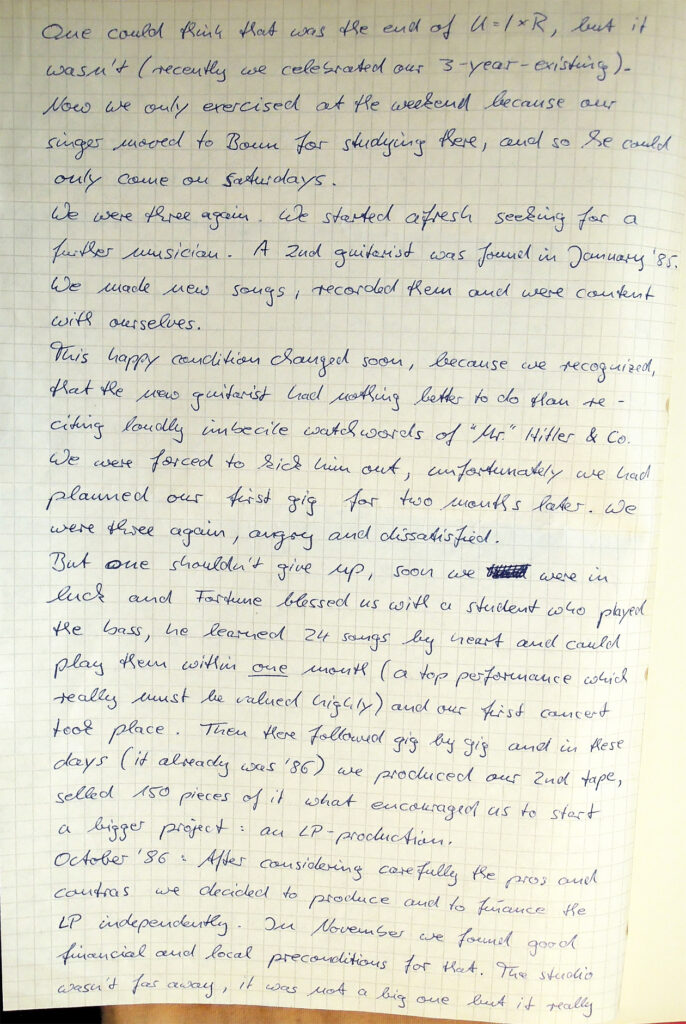 One could think that was the end of U=I×R, but it
wasn't (recently we celebrated our 3-year-existing).
Now we only exercised at the weekend because our
singer moved to Bonn for studying there, and so he could
only come on saturdays.
We were three again. We started afresh seeking for a
further musician. A 2nd guitarist was found in January '85.
We made new songs, recorded them and were content
with ourselves.
This happy condition changed soon, because we recognized,
that the new guitarist had nothing better to do than re-
citing loudly imbecile watchwords of "Mr." Hitler & Co.
We were forced to kick him out, unfortunately we had
planned our first gig for two months later. We
were three again, angry and dissatisfied.
But one shouldn't give up, soon we were in
luck and Fortune blessed us with a student who played
the bass, he learned 24 songs by heart and could
play them within one month (a top performance which
really must be valued highly) and our first concert
took place. Then there followed gig by gig and in these
days (it already was '86) we produced our 2nd tape,
selled 150 pieces of it what encouraged us to start
a bigger project: an LP-production.
October '86: After considering carefully the pros and
contras we decided to produce and to finance the
LP independently. In November we found good
financial and local preconditions for that. The studio
wasn't far away, it was not a big one but it really